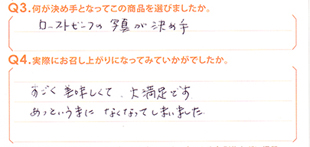 Q3.何が決め手となってこの商品を選びましたか。
ローストビーフの写真が決め手
Q4.実際にお召し上がりになってみていかがでしたか。
すごく美味しくて、大満足です
あっというまになくなってしまいました